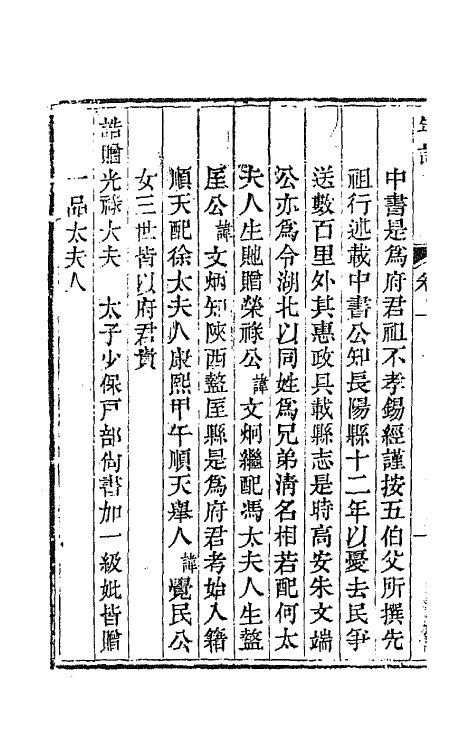 中書是爲府君祖不孝錫經謹按五伯父所撰先
祖行述載中書公知長陽縣十二年以憂去民爭
送數百里外其惠政具載縣志是時高安朱文端
公亦爲令湖北以同姓爲兄弟清名相若配何太
夫人生貤贈榮祿公諱文炯繼配馮太夫人生盩
厔公諱文炳知陝西盩厔縣是爲府君考始入籍
順天配徐太夫人康熙甲午順天舉人諱覺民公
女三世皆以府君貴
誥贈光祿大夫 太子少保戸部尙書加一級妣皆贈
一品太夫人